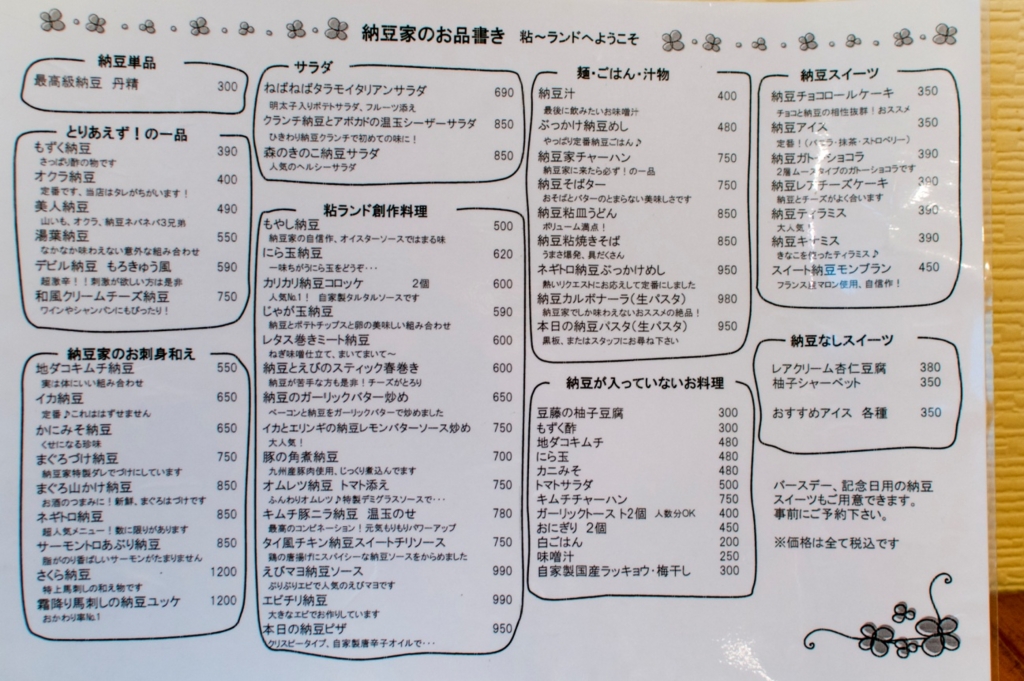 納豆家のお品書き 粘～ランドへようこそ
納豆単品
最高級納豆 丹精 300
とりあえず！の一品
もずく納豆 390
さっぱり酢の物です
オクラ納豆 400
定番です、当店はタレがちがいます！
美人納豆 490
山いも、オクラ、納豆ネバネバ3兄弟
湯葉納豆 550
なかなか味わえない意外な組み合わせ
デビル納豆 もろきゅう風 590
超激辛！！刺激が欲しい方は是非
和風クリームチーズ納豆 750
ワインやシャンパンにもぴったり！
納豆家のお刺身和え
地ダコキムチ納豆 550
実は体にいい組み合わせ
イカ納豆 650
定番♪これははずせません
かにみそ納豆 650
くせになる珍味
まぐろづけ納豆 750
納豆家特製ダレでづけにしています
まぐろ山かけ納豆 850
お酒のつまみに！新鮮、まぐろはづけです
ネギトロ納豆 850
超人気メニュー！数に限りがあります
サーモントロあぶり納豆 850
脂がのり香ばしいサーモンがたまりません
さくら納豆 1200
特上馬刺しの和え物です
霜降り馬刺しの納豆ユッケ 1200
おかわり率No.1
サラダ
ねばねばタラモイタリアンサラダ 690
明太子入りポテトサラダ、フルーツ添え
クランチ納豆とアボカドの温玉シーザーサラダ 850
ひきわり納豆クランチで初めての味に！
森のきのこ納豆サラダ 850
人気のヘルシーサラダ
粘ランド創作料理
もやし納豆 500
納豆家の自信作、オイスターソースではまる味
にら玉納豆 620
一味ちがうにら玉をどうぞ・・・
カリカリ納豆コロッケ 2個 600
人気No.1！ 自家製タルタルソースです
じゃが玉納豆 590
納豆とポテトチップスと卵の美味しい組み合わせ
レタス巻きミート納豆 600
ねぎ味噌仕立て、まいてまいて～
納豆とえびのスティック春巻き 600
納豆が苦手な方も是非！チーズがとろり
納豆のガーリックバター炒め 650
ベーコンと納豆をガーリックバターで炒めました
イカとエリンギの納豆レモンバターソース炒め 750
大人気！
豚の角煮納豆 700
九州産豚肉使用、じっくり煮込んでます
オムレツ納豆 トマト添え 750
ふんわりオムレツ♪特製デミグラスソースで・・・
キムチ豚ニラ納豆 温玉のせ 780
最高のコンビネーション！元気もりもりパワーアップ
タイ風チキン納豆スイートチリソース 750
鶏の唐揚げにスパイシーな納豆ソースをからめました
えびマヨ納豆ソース 990
ぷりぷりエビで人気のえびマヨです
エビチリ納豆 990
大きなエビでお作りしています
本日の納豆ピザ 950
クリスピータイプ、自家製唐辛子オイルで・・・
麺・ごはん・汁物
納豆汁 400
最後に飲みたいお味噌汁
ぶっかけ納豆めし 480
やっぱり定番納豆ごはん♪
納豆家チャーハン 750
納豆家に来たら必ず！の一品
納豆そばター 750
おそばとバターのとまらない美味しさです
納豆粘皿うどん 850
ボリューム満点！
納豆粘焼きそば 850
うまさ爆発、具だくさん
ネギトロ納豆ぶっかけめし 950
熱いリクエストにお応えして定番にしました
納豆カルボナーラ（生パスタ） 980
納豆家でしか味わえないおススメの絶品！
本日の納豆パスタ（生パスタ） 950
黒板、またはスタッフにお尋ね下さい
納豆が入っていないお料理
豆藤の柚子豆腐 300
もずく酢 300
地ダコキムチ 480
にら玉 480
カニみそ 480
トマトサラダ 500
キムチチャーハン 750
ガーリックトースト2個 人数分OK 400
おにぎり 2個 450
白ごはん 200
味噌汁 250
自家製国産ラッキョウ・梅干し 300
納豆スイーツ
納豆チョコロールケーキ 350
チョコと納豆の相性抜群！おススメ
納豆アイス 350
定番！（バニラ・抹茶・ストロベリー）
納豆ガトーショコラ 390
2層ムースタイプのガトーショコラです
納豆レアチーズケーキ 390
納豆とチーズがよく合います
納豆ティラミス 390
大人気
納豆キャミス 390
きなこを使ったティラミス♪
スイート納豆モンブラン 450
フランス産マロン使用、自信作！
納豆なしスイーツ
レアクリーム杏仁豆腐 380
柚子シャーベット 350
おすすめアイス 各種 350
バースデー、記念日用の納豆
スイーツもご用意できます。
事前にご予約下さい。
※価格は全て税込です